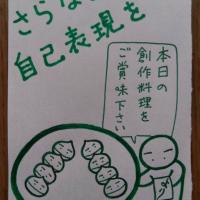 さらな
自己表現を
本日の
創作料理を
ご賞味下さい